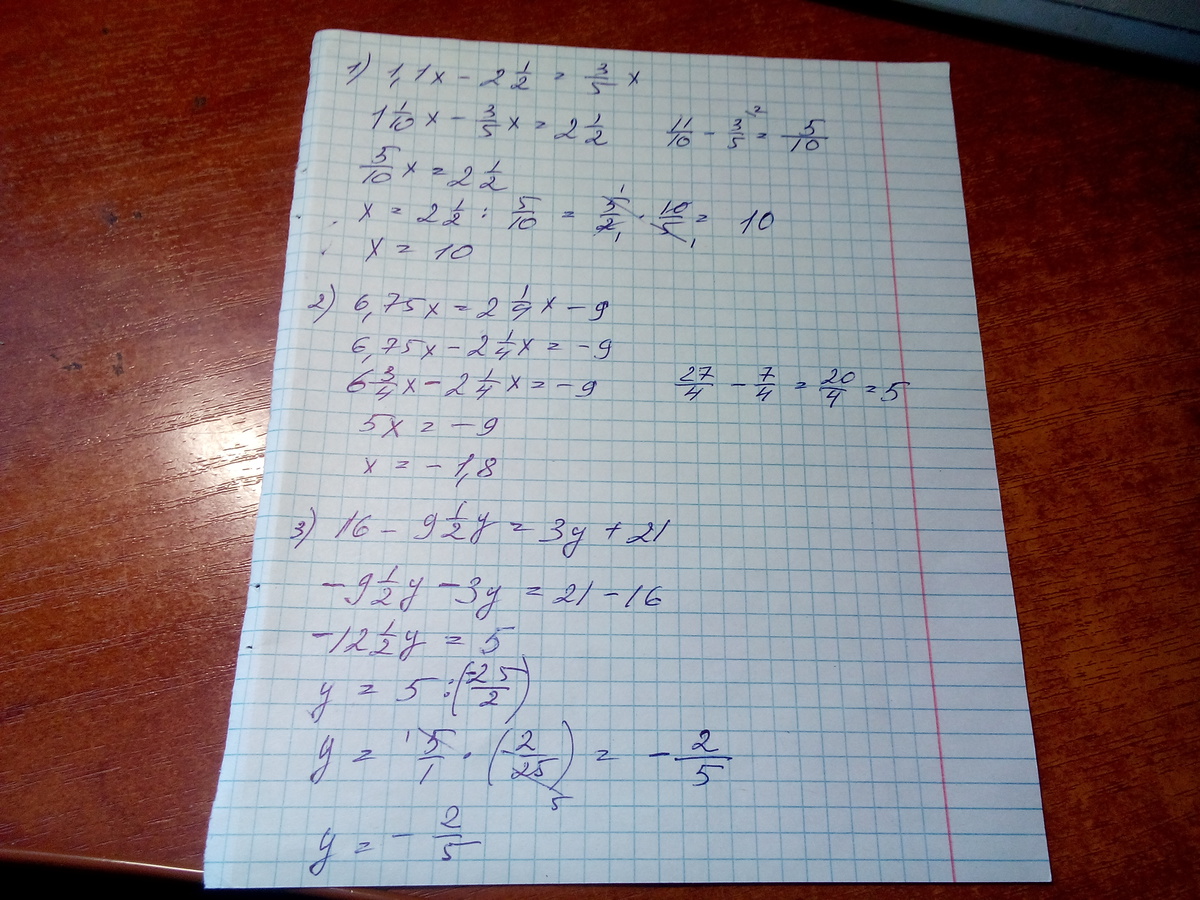 1) 1,1x - 2 1/2 = 3/5 x
1 1/10 x - 3/5 x = 2 1/2    11/10 - 3/5 ² = 5/10
5/10 x = 2 1/2
x = 2 1/2 : 5/10 = 5/2 · 10/5 = 10
x = 10
2) 6,75x = 2 1/4 x - 9
6,75x - 2 1/4 x = -9
6 3/4 x - 2 1/4 x = -9    27/4 - 7/4 = 20/4 = 5
5x = -9
x = -1,8
3) 16 - 9 1/2 y = 3y + 21
-9 1/2 y - 3y = 21 - 16
-12 1/2 y = 5
y = 5 : (-25/2)
y = 5/1 · (-2/25) = -2/5
y = -2/5